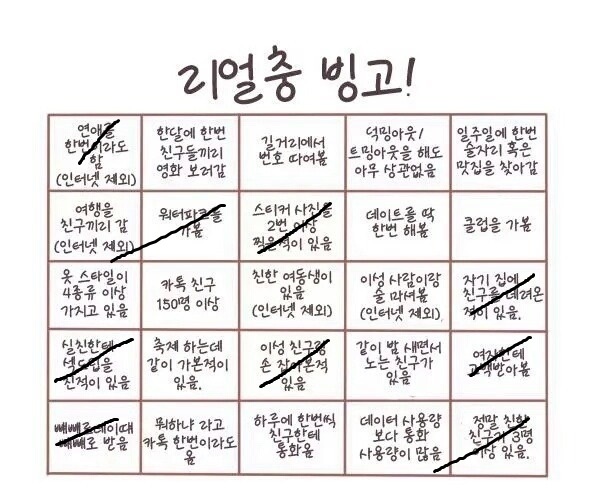 리얼충 빙고!
연애를
한번이라도
함
(인터넷 제외)
한달에 한번
친구들끼리
영화 보러감
길거리에서
번호 따여봄
덕밍아웃/
트밍아웃을 해도
아무 상관없음
일주일에 한번
술자리 혹은
맛집을 찾아감
여행을
친구끼리 감
(인터넷 제외)
워터파크를
가봄
스티커 사진을
2번 이상
찍은적이 있음
데이트를 딱
한번 해봄
클럽을 가봄
옷 스타일이
4종류 이상
가지고 있음
카톡 친구
150명 이상
친한 여동생이
있음
(인터넷 제외)
이성 사람이랑
술 마셔봄
(인터넷 제외)
자기 집에
친구를 데려온
적이 있음.
실친한테
섹드립을
친적이 있음
축제 하는데
같이 가본적이
있음.
이성 친구랑
손 잡아본적
있음
같이 밤 새면서
노는 친구가
있음
여자한테
고백받아봄
빼빼로데이때
빼빼로 받음
뭐하냐 라고
카톡 한번이라도
옴
하루에 한번씩
친구한테
통화옴
데이터 사용량
보다 통화
사용량이 많음
정말 친한
친구가 3명
이상 있음.